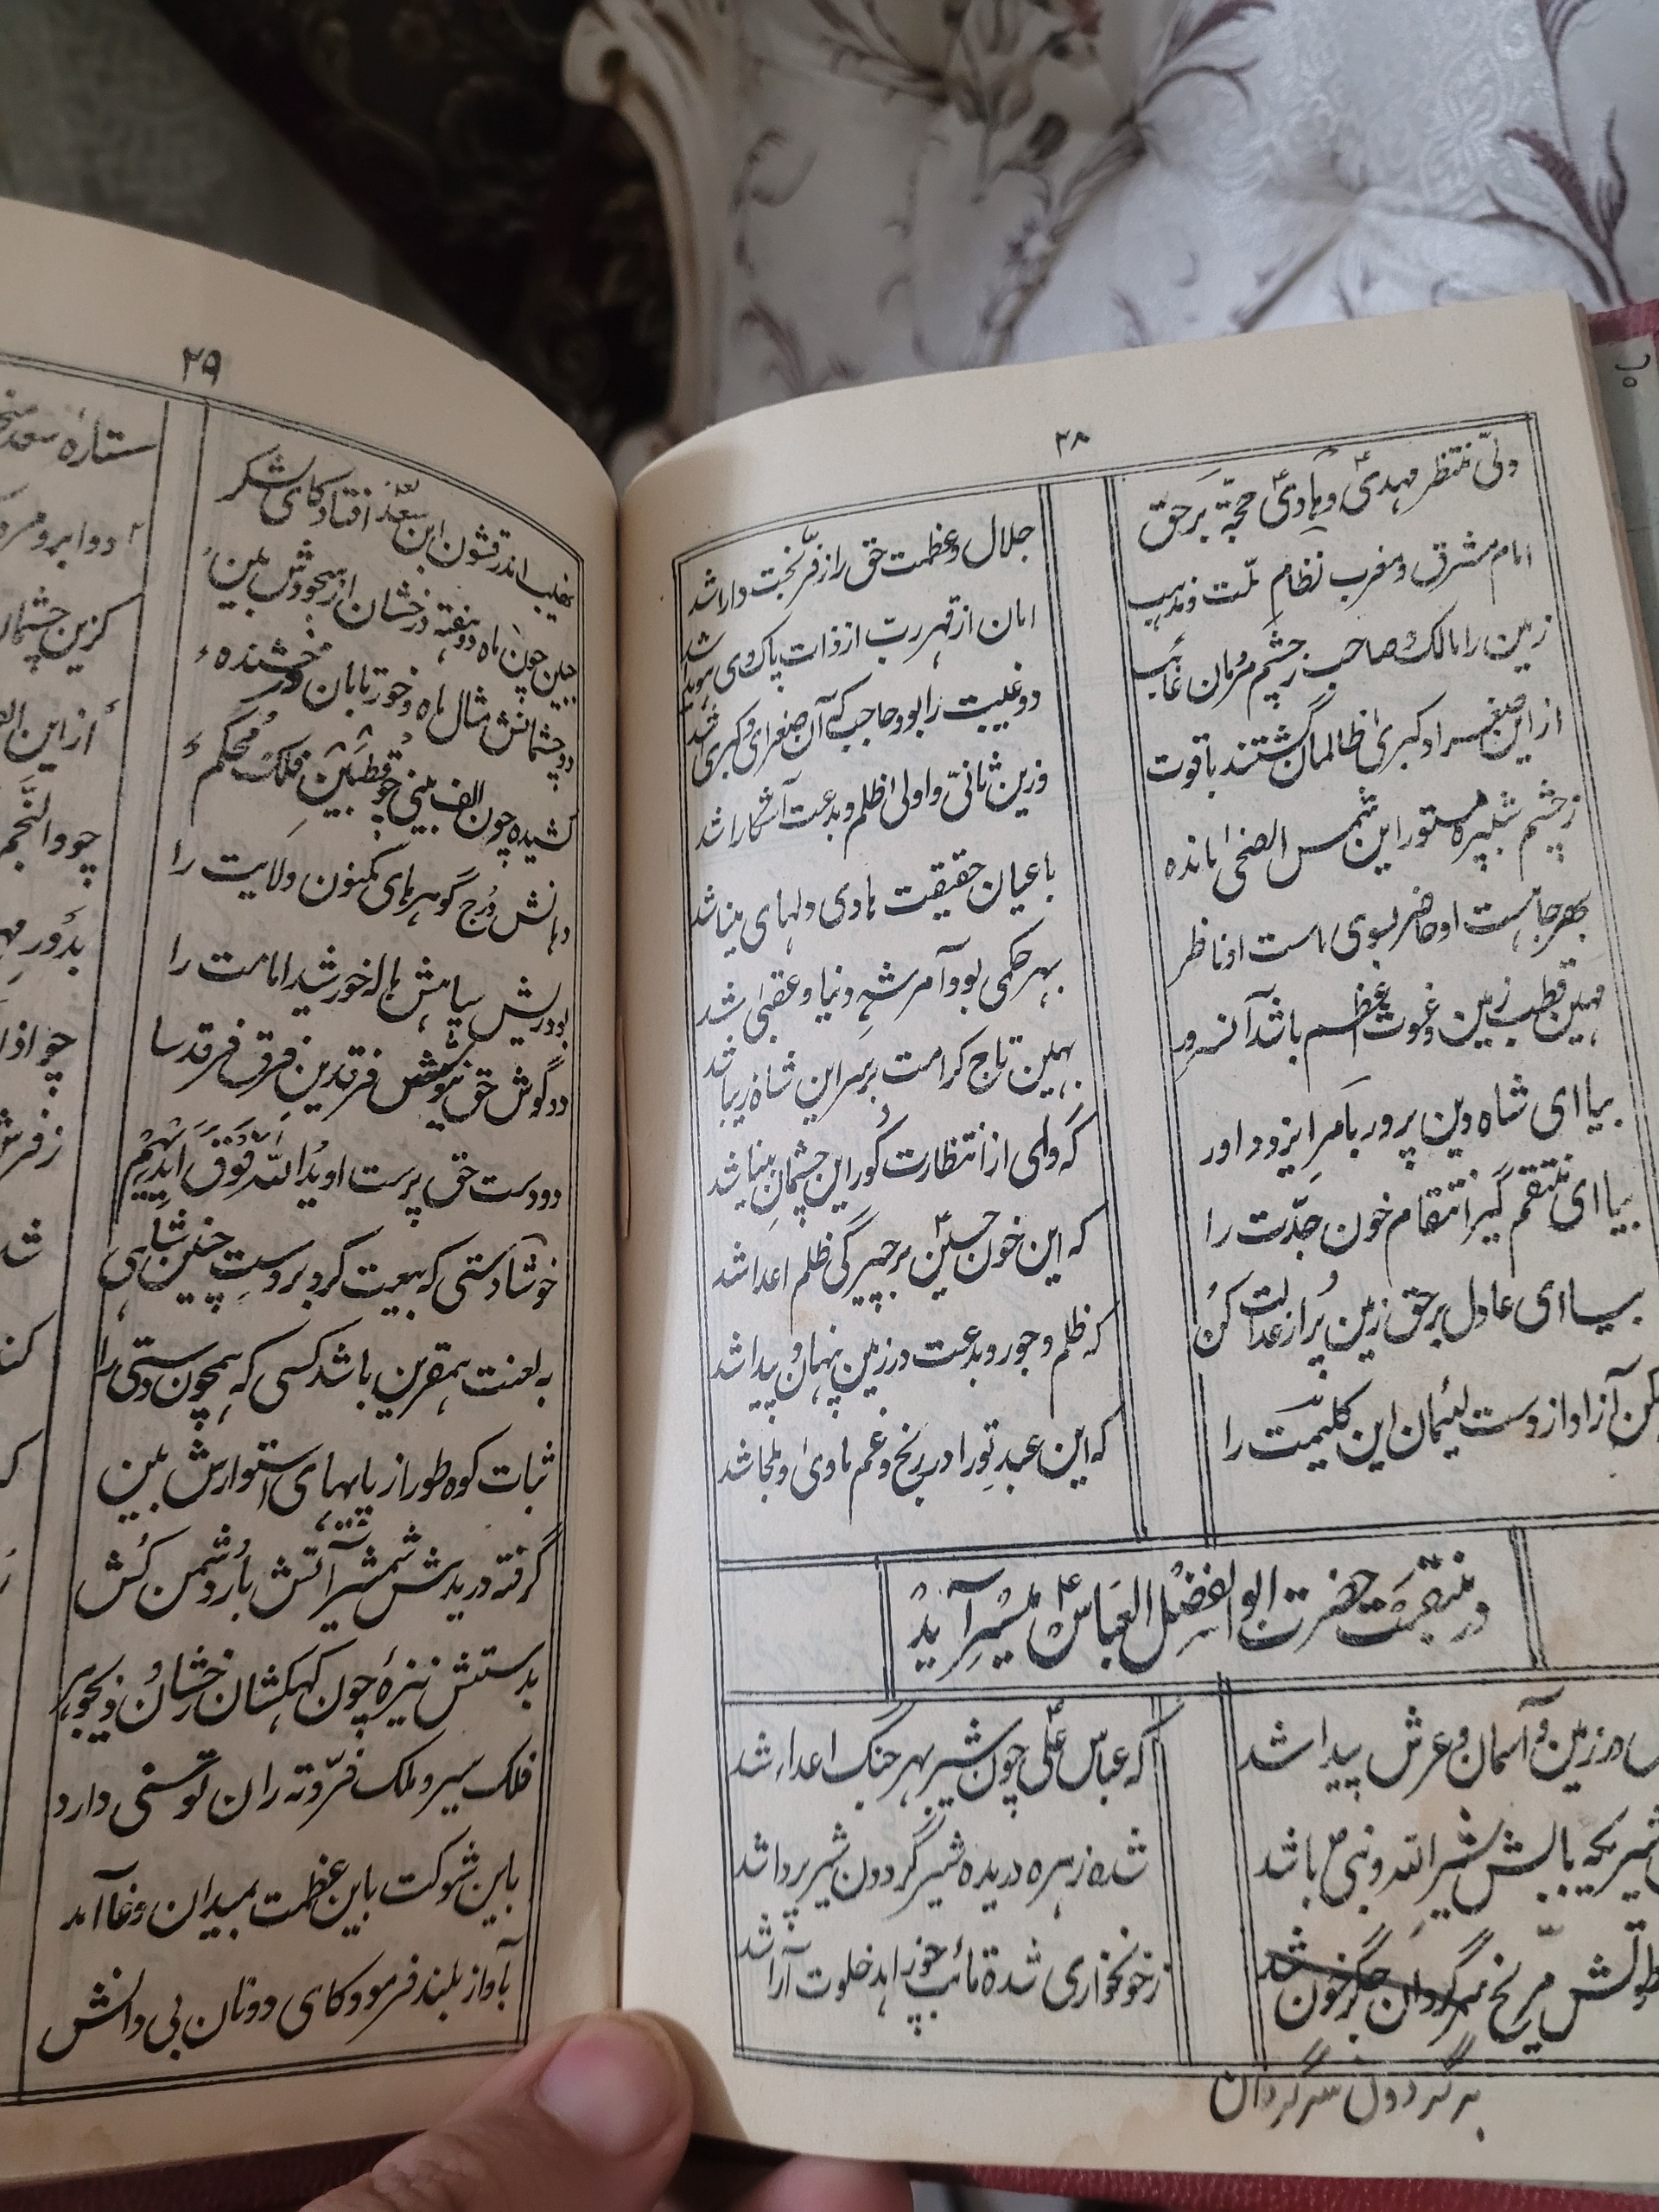 ۳۸
ولی منتظر مهدیؑ و هادیؑ حجة بر حق
جلال و عظمت حق را ز فرّ بخت دارا شد
امام مشرق و مغرب نظام ملت و مذهب
امان از قهر رب از ذات پاک وی هویدا شد
زمین را مالک صاحب ز چشم مردمان غائب
دو غیبت را بود حاجب که آن صغرای و کبری شد
از این صغرا و کبریٰ ظالمان گشتند با قوت
وزین ثانیّ و اولی ظلم و بدعت آشکارا شد
ز چشم شبپره مستور این شمس الضحیٰ مانده
با عیان حقیقت هادی دلهای بینا شد
بهر جا هست او حاضر بسوی ماست او ناظر
بهر حکمی بود آمر شه دنیا و عقبیٰ شد
مهین قطب زمین و غوث اعظم باشد آنسرور
بهین تاج کرامت بر سر این شاه زیبا شد
بیا ای شاه دین پرور بامر ایزد داور
که وای از انتظارت کور این چشمان بینا شد
بیا ای منتقم گیر انتقام خون جدّت را
که این خون حسینؑ بر چیرگی ظلم اعدا شد
بیا ای عادل بر حق زمین پر از عدالت کن
که ظلم و جور و بدعت در زمین پنهان و پیدا شد
کن آزاد از دست لئیمان این کلیمت را
که این عبد تو را در رنج و غم ماویٰ و ملجا شد
در منقبت حضرت ابو الفضل العباسؑ میسر آید
در زمین و آسمان و عرش پیدا شد
که عباس علیؑ چون شیر بهر جنگ اعداء شد
بابش شیر الله و نبی باشد
شده زهره دریده شیر گردون شیر پردا شد
مریخ سرگردان جگر خون شد
ز خونخواری شده تائب چو زاهد خلوت آرا شد
بر گردون سرگردان
۳۹
نهیب اندر قشون ابن سعد افتاد کای لشکر
جبین چون ماه دو هفته درخشان از سجودش بین
دو چشمانش مثال ماه و خور تابان درخشنده
کشیده چون الف بینی چو قطبین فلک محکم
دهانش درج گوهرهای مکنون ولایت را
بود ریش سیاهش هاله خورشید امامت را
دو گوش حق نیوشش فرقدین فرق فرقدسا
دو دست حق پرست او ید الله فوق ایدیهم
خوشا دستی که بیعت کرد بر دست چنین شاهی
به لعنت همقرین باشد کسی که همچون دستی را
ثبات کوه طور از پایهای استوارش بین
گرفته در یدش شمشیر آتش بار دشمن کش
بدستش نیزهٔ چون کهکشان رخشان و پر جوهر
فلک سیر و ملک فرّ و ته ران توسنی دارد
باین شوکت باین عظمت بمیدان وغا آمد
بآواز بلند فرمود کای دونان بی دانش
ستارهٔ سعد
دو ابرو
کزین چشمان
از این
چو والنجم
بدور
چو